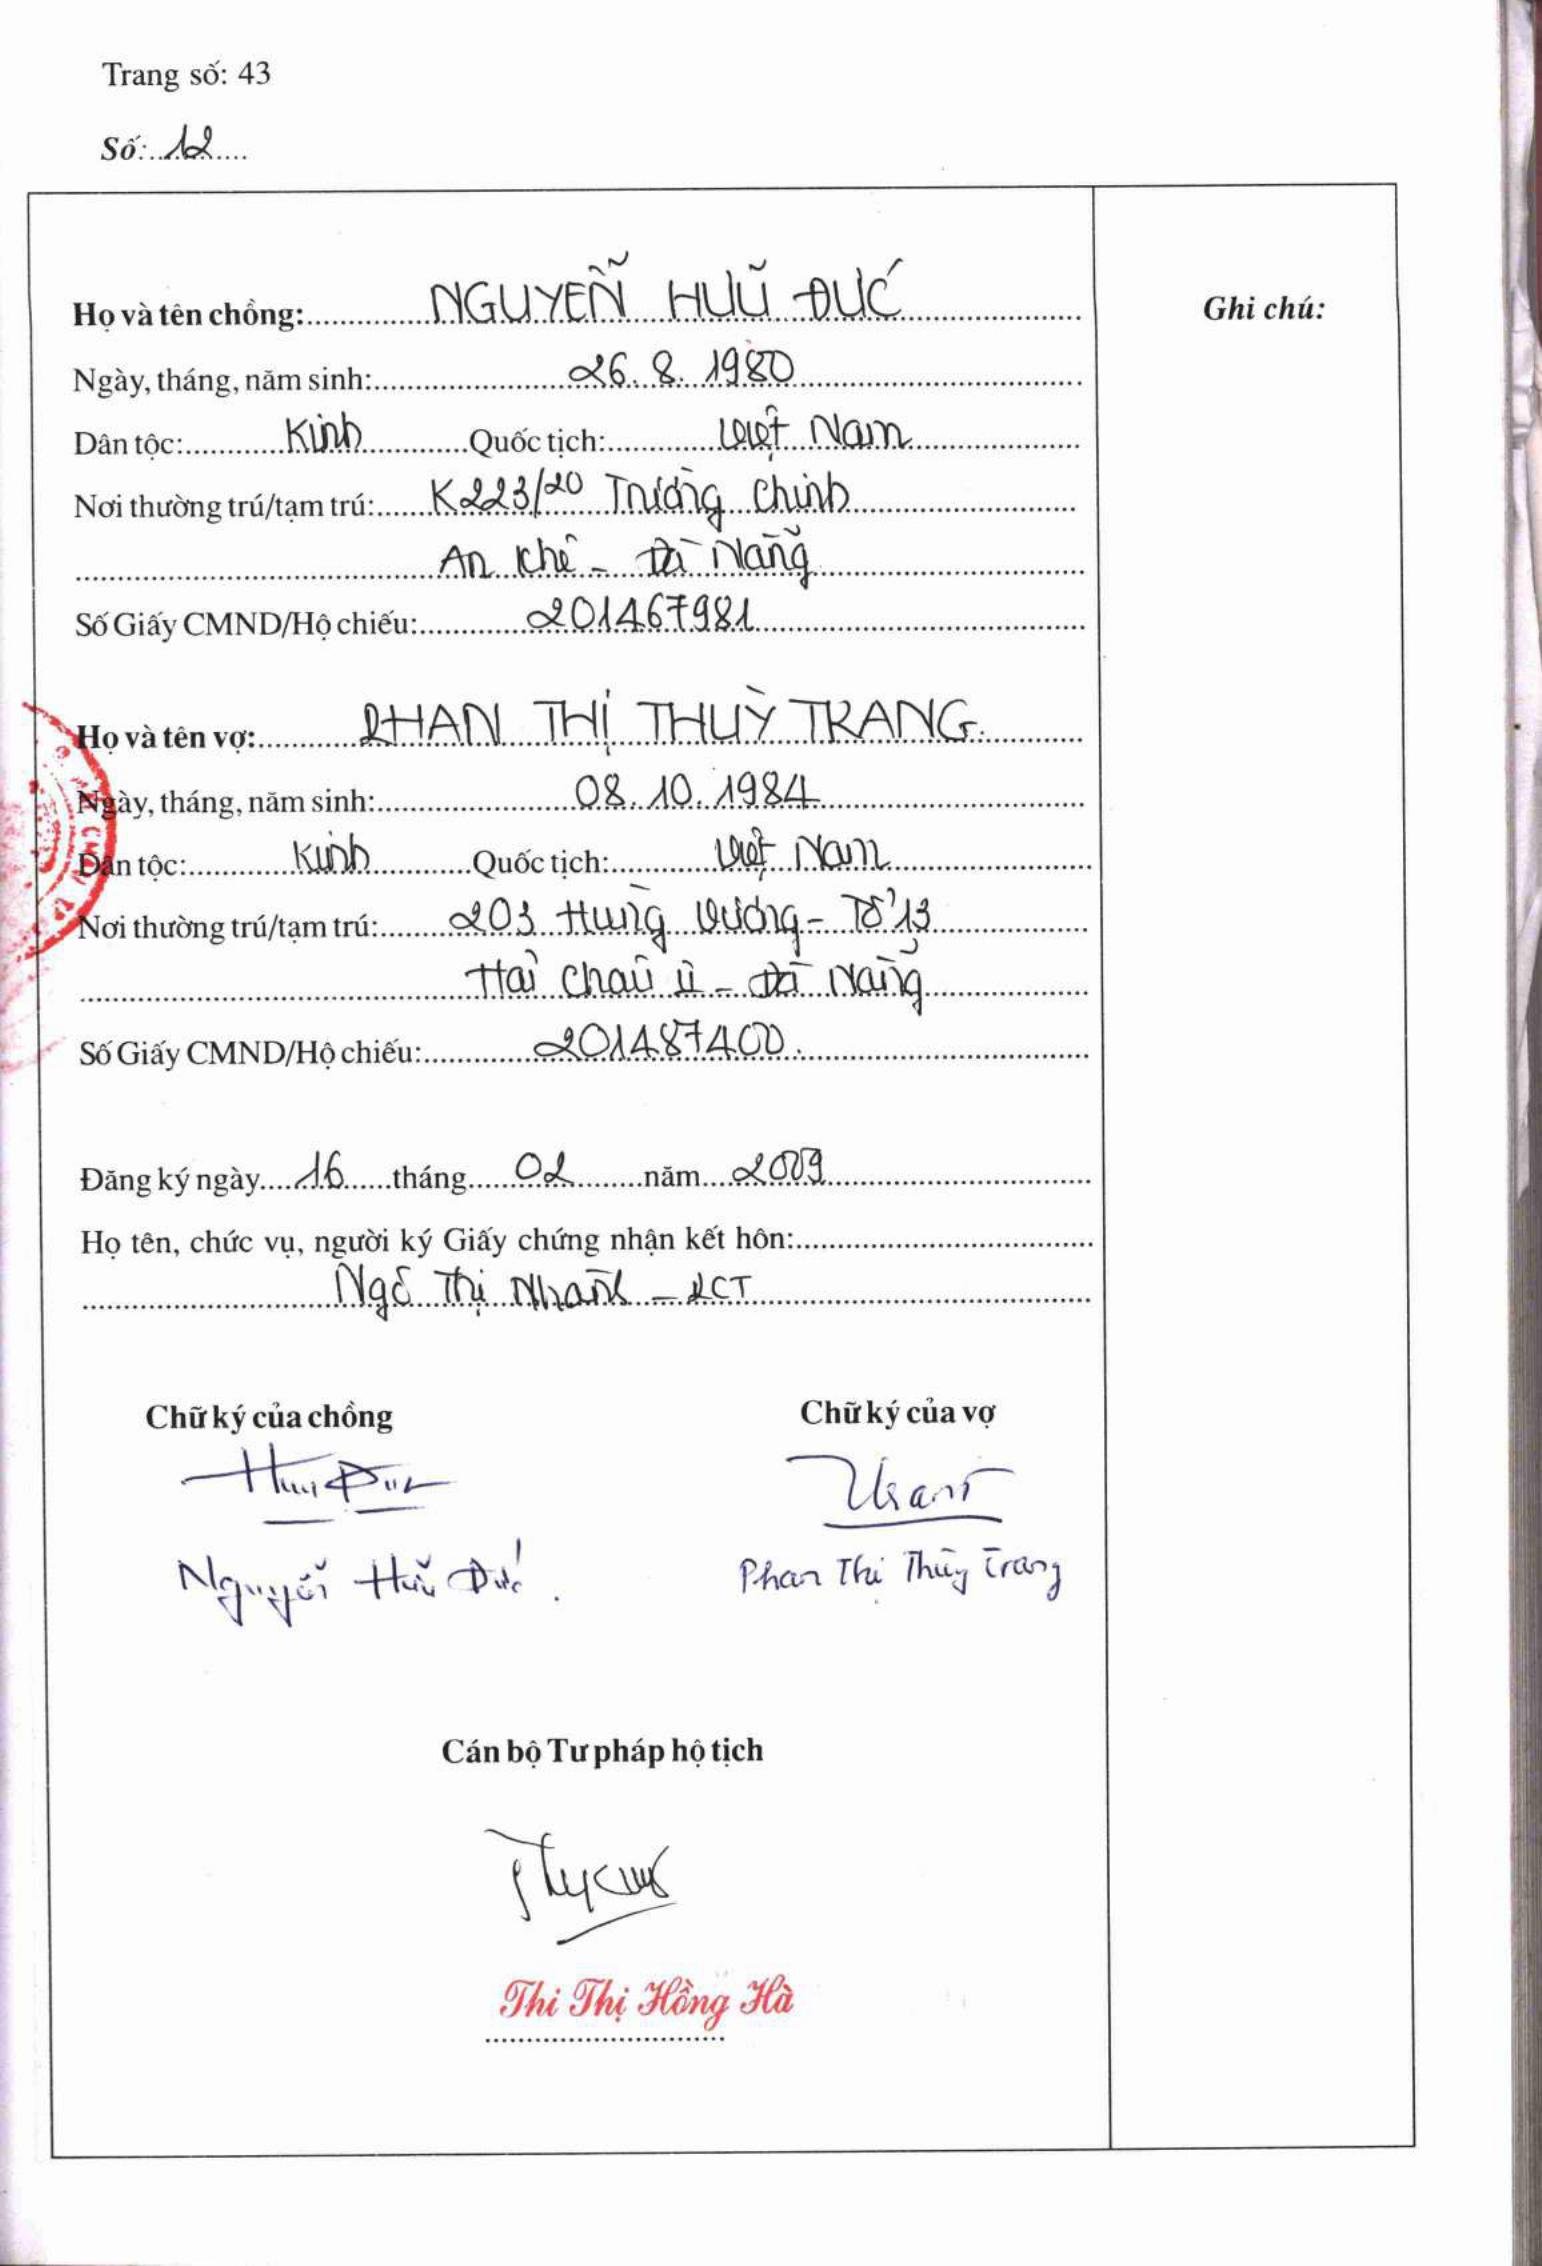 Trang số: 43
Số: 12
Họ và tên chồng: NGUYỄN HỮU ĐỨC
Ghi chú:
Ngày, tháng, năm sinh: 26.8.1980
Dân tộc: Kinh Quốc tịch: Việt Nam
Nơi thường trú/tạm trú: K223/20 Trường Chinh
An Khê - Đà Nẵng
Số Giấy CMND/Hộ chiếu: 201467981
Họ và tên vợ: PHAN THỊ THUỲ TRANG.
Ngày, tháng, năm sinh: 08.10.1984
Dân tộc: Kinh Quốc tịch: Việt Nam
Nơi thường trú/tạm trú: 203 Hùng Vương - Tổ 13
Hải Châu II - Đà Nẵng
Số Giấy CMND/Hộ chiếu: 201487400.
Đăng ký ngày 16 tháng 02 năm 2009
Họ tên, chức vụ, người ký Giấy chứng nhận kết hôn:
Ngô Thị Nhành - PCT
Chữ ký của chồng Chữ ký của vợ
Nguyễn Hữu Đức. Phan Thị Thùy Trang
Cán bộ Tư pháp hộ tịch
Thi Thị Hồng Hà